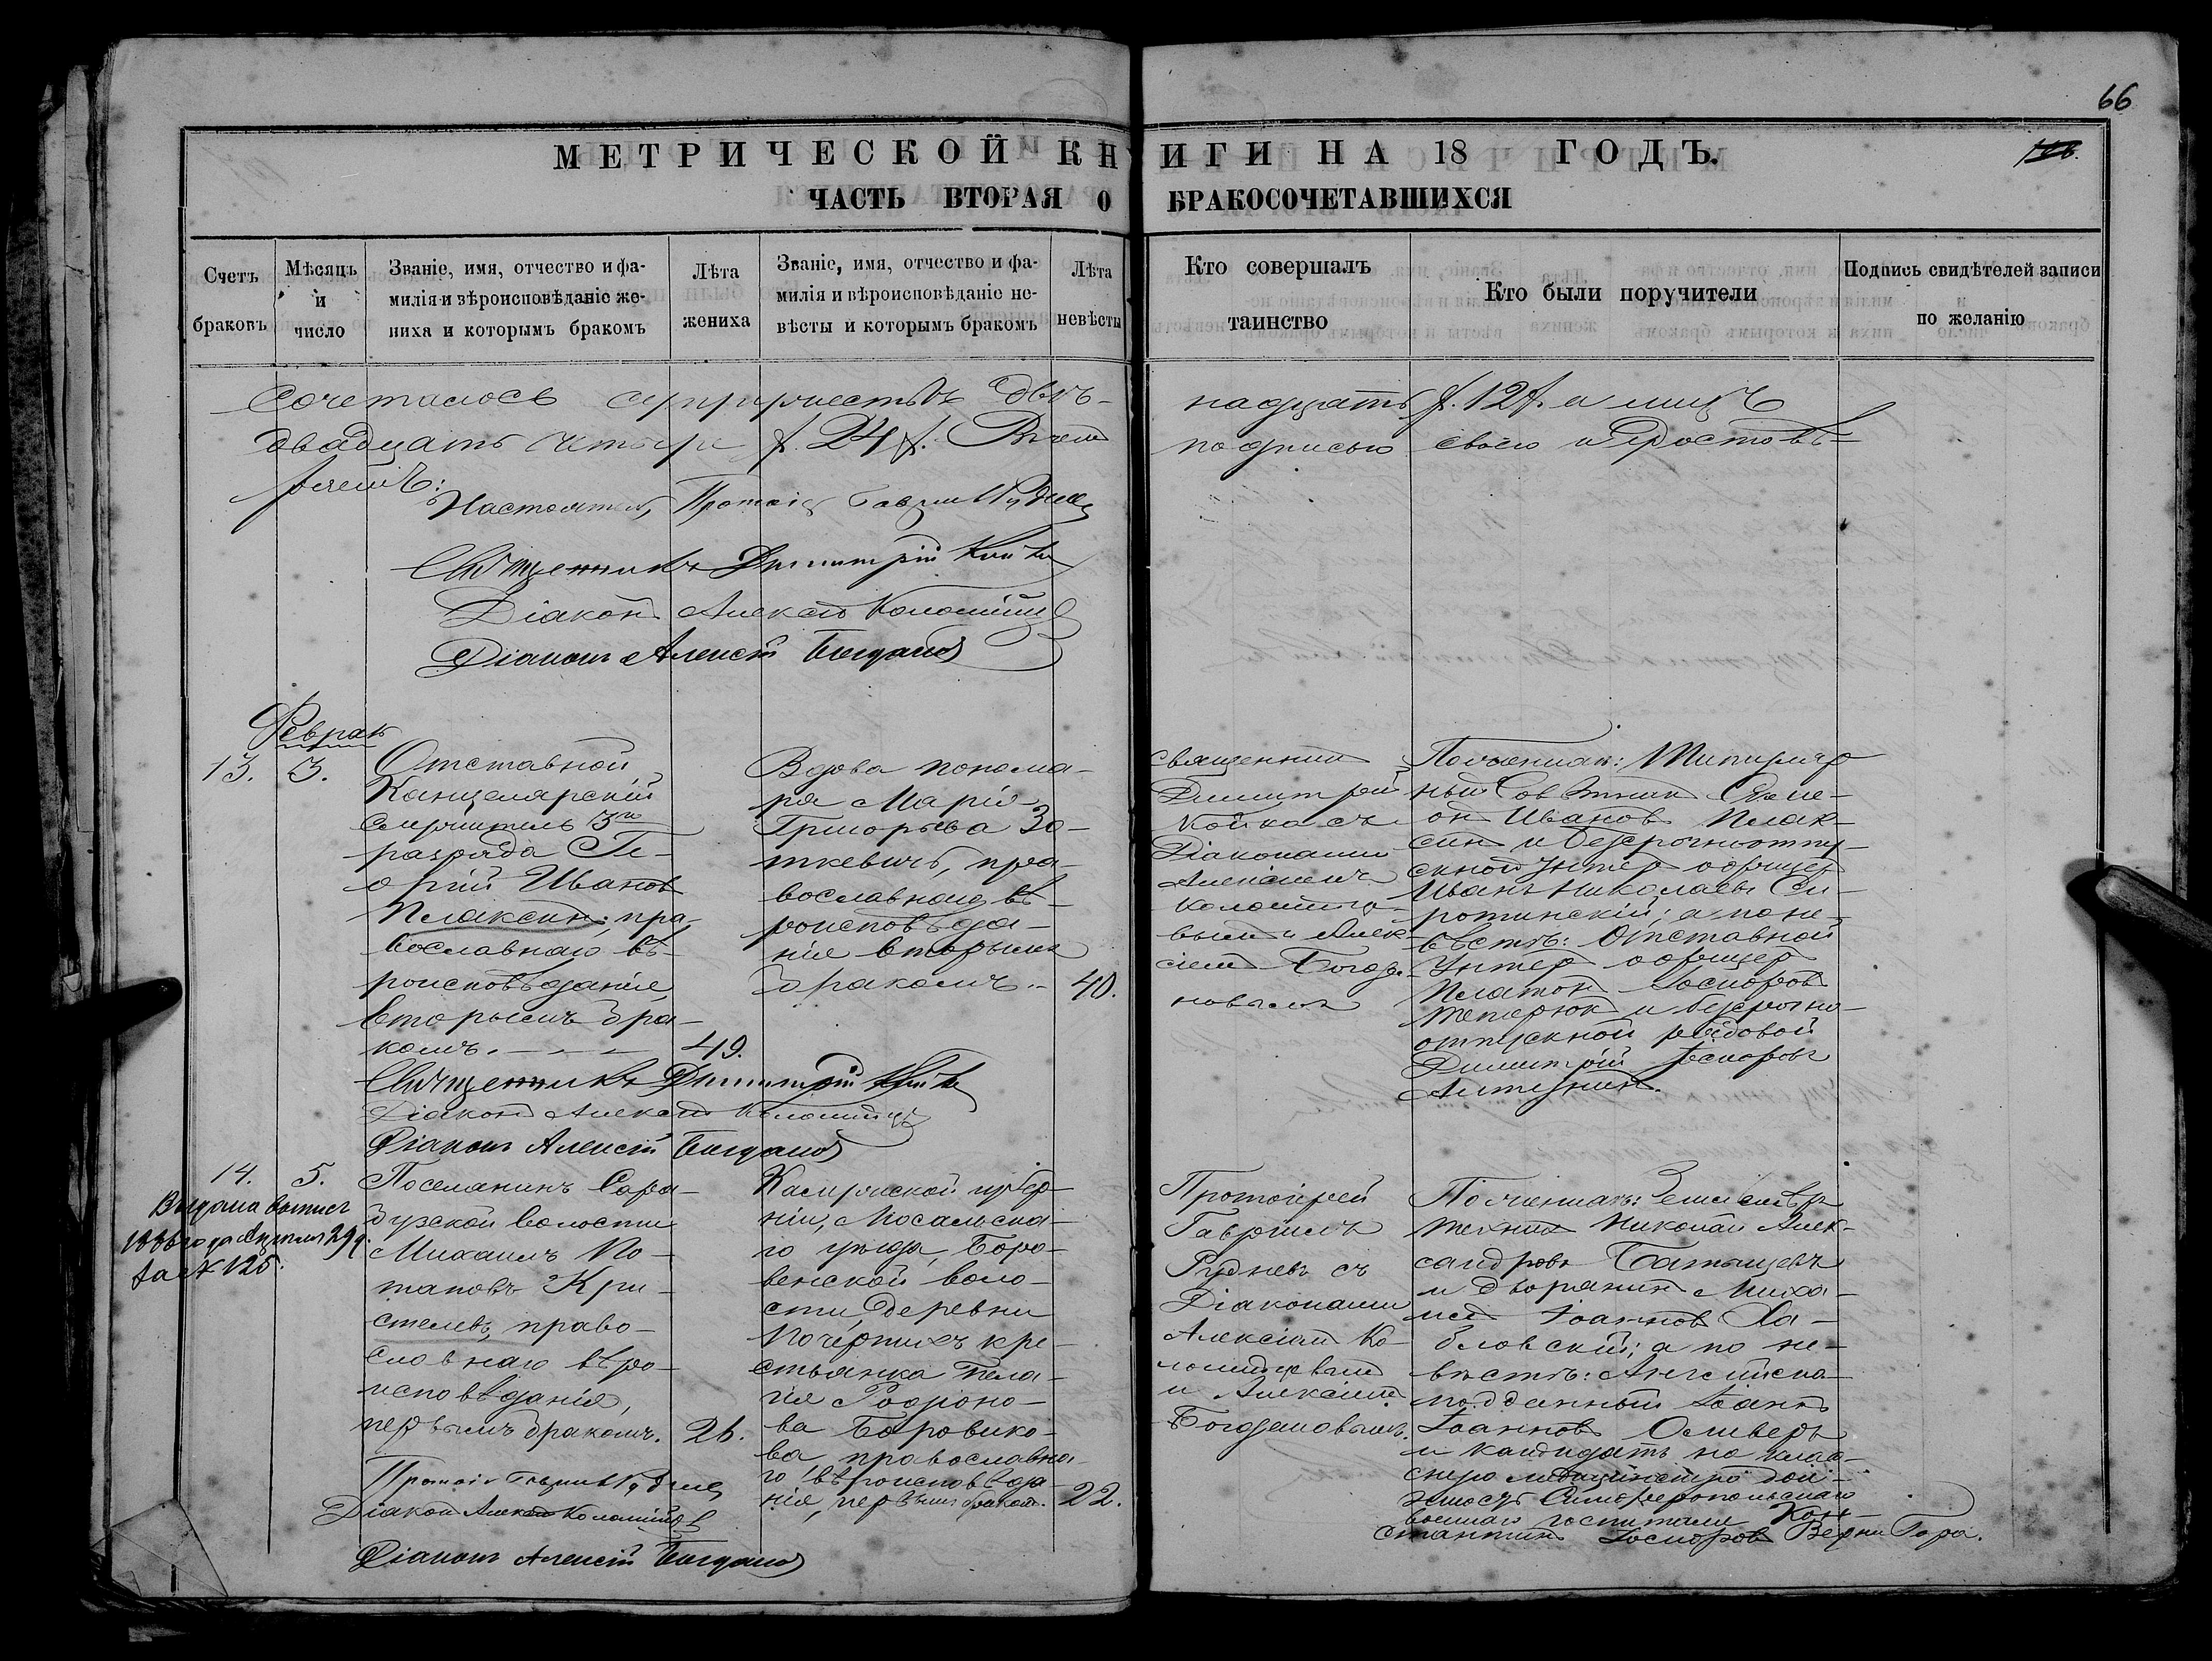 66
МЕТРИЧЕСКОЙ КНИГИ НА 18 ГОДЪ.
ЧАСТЬ ВТОРАЯ О БРАКОСОЧЕТАВШИХСЯ
Счетъ браковъ
Мѣсяцъ и число
Званіе, имя, отчество и фа-
милія и вѣроисповѣданіе же-
ниха и которымъ бракомъ
Лѣта жениха
Званіе, имя, отчество и фа-
милія и вѣроисповѣданіе не-
вѣсты и которымъ бракомъ
Лѣта невѣсты
Кто совершалъ таинство
Кто были поручители
Подпись свидѣтелей записи
по желанію
Сочеталось супружествъ двѣ-
надцать /. 12 /. а лицъ
двадцать четыре /. 24 /.
подписью своею
Настоятель, Протоіе Гавріилъ Рудневъ
Священникъ Димитрій Койко
Діаконъ Алексій Коломійцевъ
Діаконъ Алексій Богдановъ
Феврал
13.
3.
Отставной
Канцелярскій
служитель 3го
разряда Ге-
оргій Ивановъ
Плаксинъ, пра-
вославнаго вѣ-
роисповѣданія,
вторымъ бра-
комъ.
49.
Вдова понома-
ря Марія
Григорьева Зо-
ткевичъ, пра-
вославнаго вѣ-
роисповѣда-
нія вторымъ
бракомъ.
40.
Священникъ
Димитрій
Койко съ
Діаконами
Алексіемъ
Коломійце-
вымъ и Алек-
сіемъ Богда-
новымъ
По женихѣ: Титуляр-
ный Совѣтникъ Симе-
онъ Ивановъ Плак-
синъ и безсрочноотпу-
скной унтеръ офицеръ
Иванъ Николаевъ Си-
ротинскій; а по не-
вѣстѣ: Отставной
Унтеръ офицеръ
Платонъ Іосифовъ
Тетерюк и безсрочно-
отпускной рядовой
Димитрій Іосифовъ
Священникъ Димитрій Койко
Діаконъ Алексій Коломійцевъ
Діаконъ Алексій Богдановъ
14.
5.
Выдана выпись
1886 года Апрѣля 29 д.
за № 125.
Поселянинъ Сара-
бузской волости
Михаилъ По-
таповъ Кри-
стелевъ, право-
славнаго вѣро-
исповѣданія,
первымъ бракомъ.
26.
Калужской губер-
ніи, Мосальска-
го уѣзда, Боро-
венской воло-
сти, деревни
Починковъ кре-
стьянка Пела-
гія Родіоно-
ва Боровико-
ва, православна-
го вѣроисповѣда-
нія, первымъ бракомъ.
22.
Протоіерей
Гавріилъ
Рудневъ съ
Діаконами
Алексіемъ Ко-
ломійцевымъ
и Алексіемъ
Богдановымъ.
По женихѣ: Землемѣръ
техникъ Николай Алек-
сандровъ Батыщевъ
и дворянинъ Миха-
илъ Іоанновъ Ха-
бловскій; а по не-
вѣстѣ: Англійско-
подданный Іоаннъ
Іоанновъ Оливеръ
и кандидатъ на клас-
сную медицинскую дол-
жность Симферопольскаго
военнаго госпиталя Кон-
стантинъ Іосифовъ Верни Гора.
Протоіе Гавріилъ Рудневъ
Діаконъ Алексій Коломійцевъ
Діаконъ Алексій Богдановъ